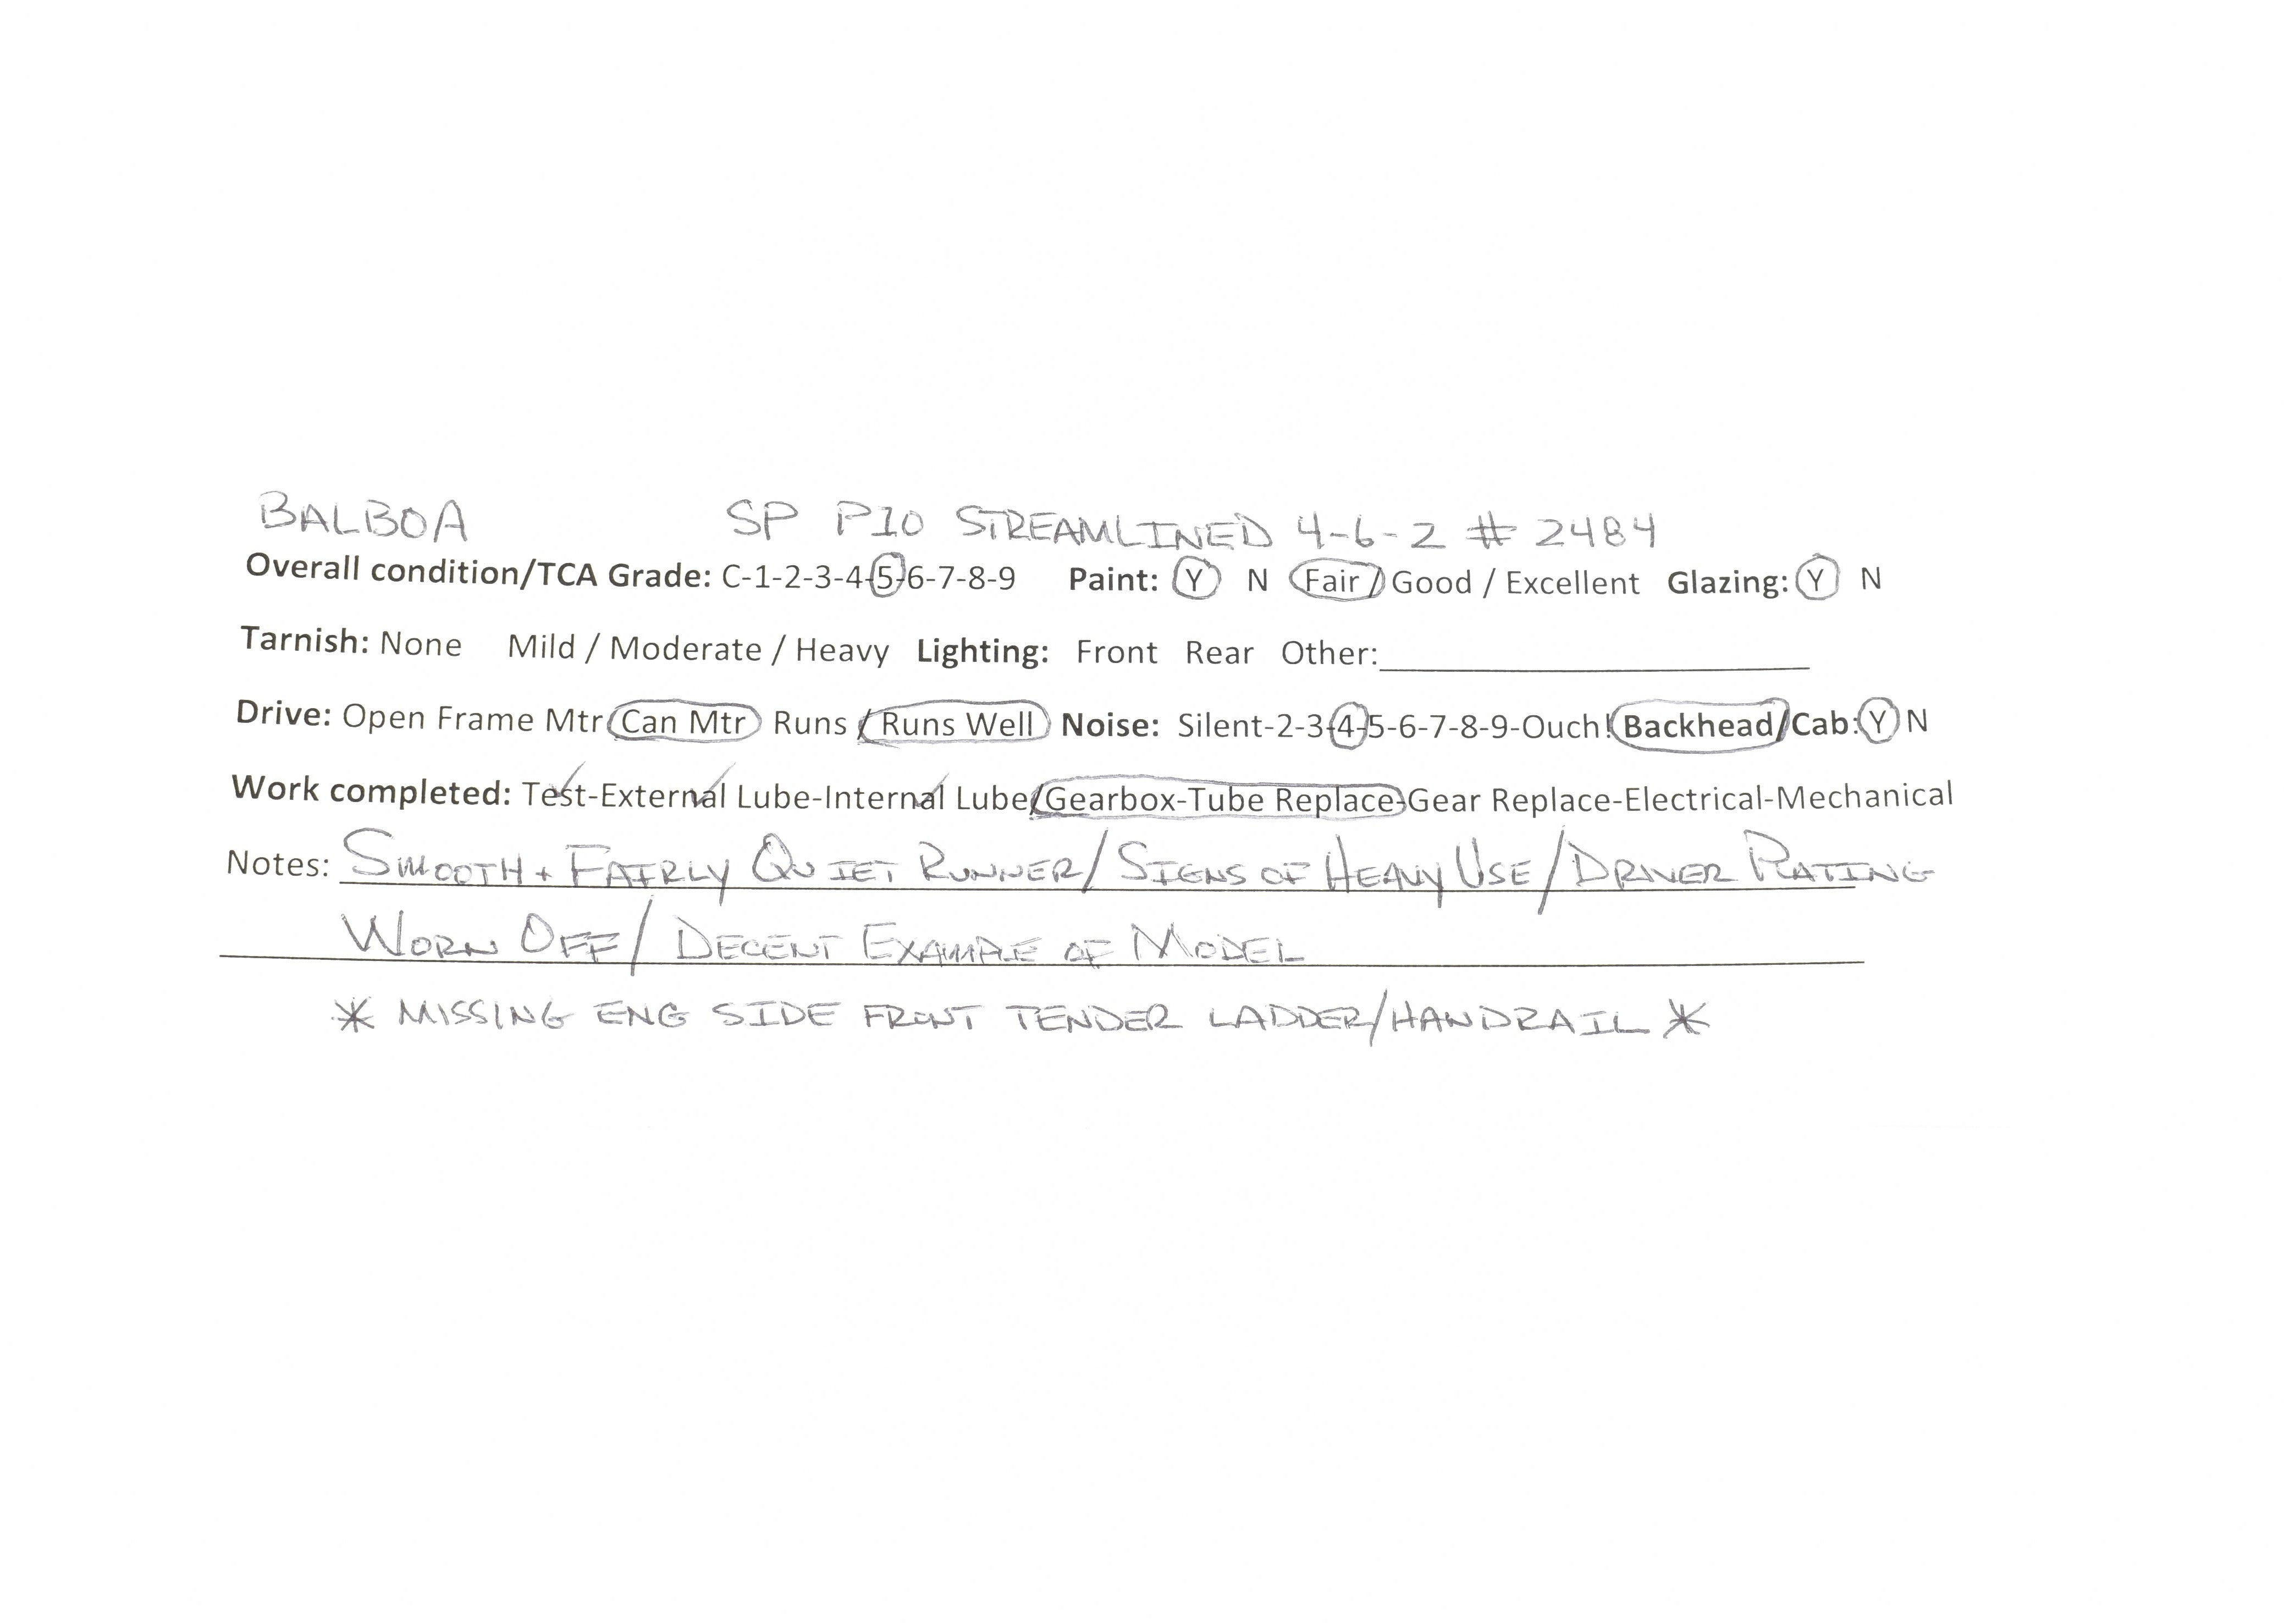 BALBOA SP P10 STREAMLINED 4-6-2 # 2484
Overall condition/TCA Grade: C-1-2-3-4-5-6-7-8-9 Paint: Y N Fair / Good / Excellent Glazing: Y N
Tarnish: None Mild / Moderate / Heavy Lighting: Front Rear Other:
Drive: Open Frame Mtr Can Mtr Runs / Runs Well Noise: Silent-2-3-4-5-6-7-8-9-Ouch! Backhead/Cab: Y N
Work completed: Test-External Lube-Internal Lube/Gearbox-Tube Replace-Gear Replace-Electrical-Mechanical
Notes: SMOOTH + FAIRLY QUIET RUNNER/ SIGNS OF HEAVY USE / DRIVER PLATING
WORN OFF / DECENT EXAMPLE OF MODEL
* MISSING ENG SIDE FRONT TENDER LADDER/HANDRAIL *